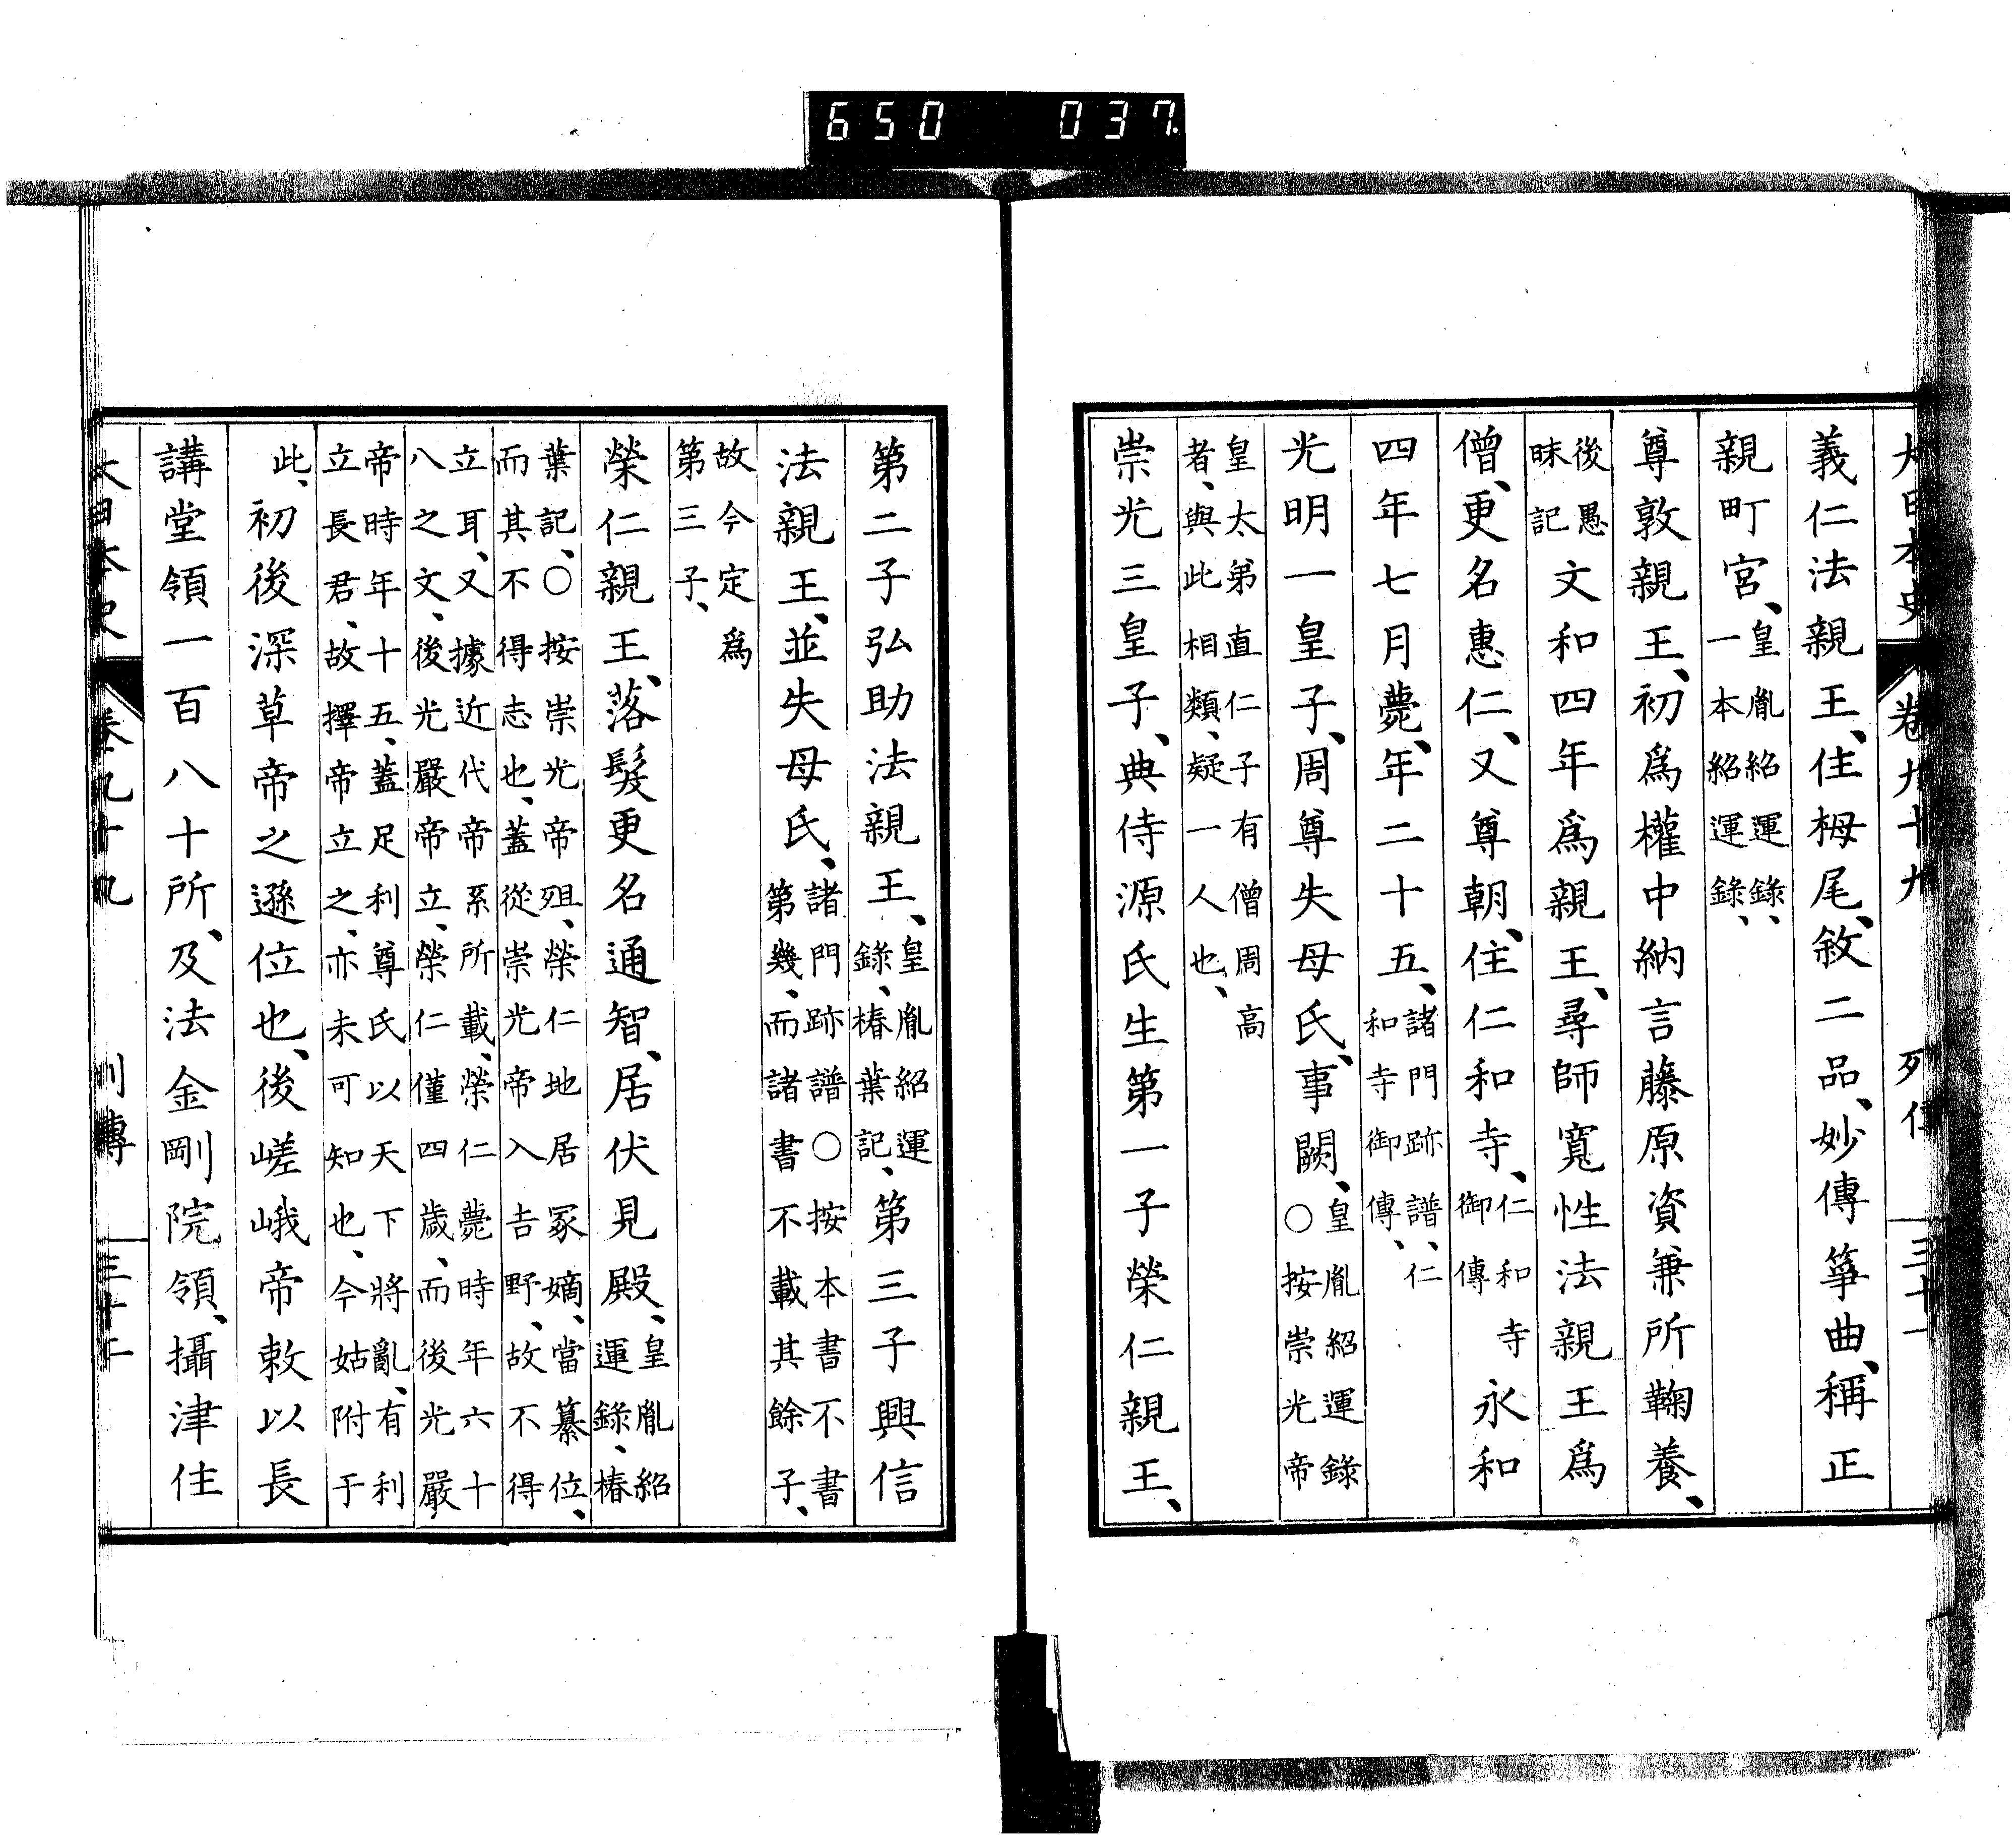 650 037
大日本史 卷九十九 列傳 三十一
義仁法親王、住栂尾、敘二品、妙傳箏曲、稱正
親町宮、皇胤紹運錄、一本紹運錄、
尊敦親王、初爲權中納言藤原資兼所鞠養、
後愚昧記文和四年爲親王、尋師寬性法親王爲
僧、更名惠仁、又尊朝、住仁和寺、仁和寺御傳永和
四年七月薨、年二十五、諸門跡譜、仁和寺御傳、
光明一皇子、周尊失母氏、事闕、皇胤紹運錄○按崇光帝
皇太弟直仁子有僧周高者、與此相類、疑一人也、
崇光三皇子、典侍源氏生第一子榮仁親王、
第二子弘助法親王、皇胤紹運錄、椿葉記、第三子興信
法親王、並失母氏、諸門跡譜○按本書不書第幾、而諸書不載其餘子、
故今定爲第三子、
榮仁親王、落髮更名通智、居伏見殿、皇胤紹運錄、椿
葉記、○按崇光帝殂、榮仁地居冢嫡、當纂位、而其不得志也、蓋從崇光帝入吉野、故不得
立耳、又據近代帝系所載、榮仁薨時年六十八之文、後光嚴帝立、榮仁僅四歲、而後光嚴
帝時年十五、蓋足利尊氏以天下將亂、有利立長君、故擇帝立之、亦未可知也、今姑附于
此、初後深草帝之遜位也、後嵯峨帝敕以長
講堂領一百八十所、及法金剛院領、攝津住
大日本史 卷九十九 列傳 三十二